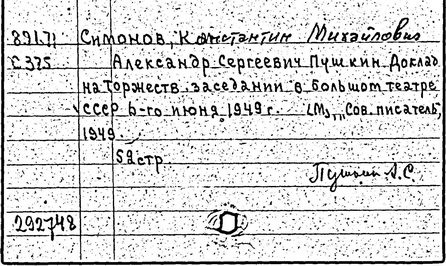 891.71 Симонов, Константин Михайлович
С 375 Александр Сергеевич Пушкин. Доклад
на торжеств. заседании в Большом театре
СССР 6-го июня 1949 г. [М], "Сов. писатель",
1949.
52 стр.
Пушкин А.С.
292748